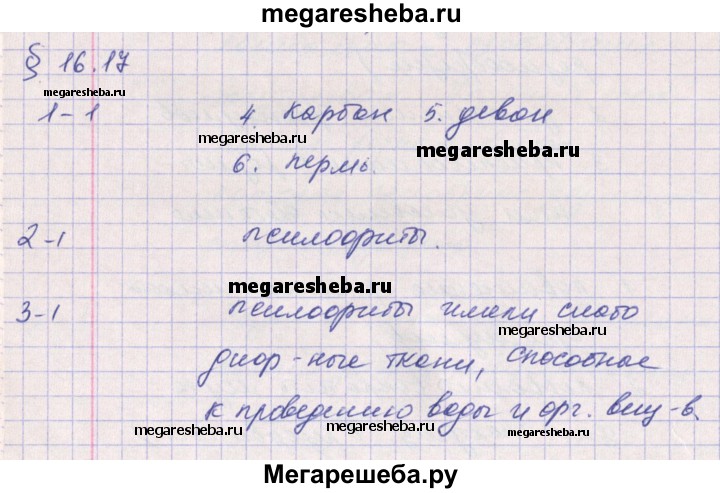 megaresheba.ru
§ 16.17
megaresheba.ru
1-1 4. карбон 5. девон
megaresheba.ru megaresheba.ru
6. пермь.
2-1 псилофиты.
megaresheba.ru
3-1 имели слабо
megaresheba.ru
-ные ткани, способные
к проведению воды и орг. вещ-в.
megaresheba.ru megaresheba.ru
Мегарешеба.ру